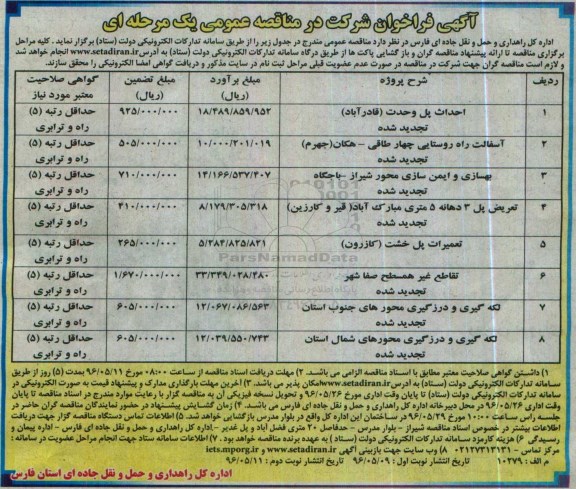 آگهی فراخوان شرکت در مناقصه عمومی یک مرحله ای
اداره کل راهداری و حمل و نقل جاده ای فارس در نظر دارد مناقصه عمومی مندرج در جدول زیر را از طریق سامانه تدارکات الکترونیکی دولت (ستاد) برگزار نماید . کلیه مراحل
برگزاری مناقصه تا ارائه پیشنهاد مناقصه گران و باز گشایی پاکت ها از طریق درگاه سامانه تدارکات الکترونیکی دولت (ستاد) به آدرس www.setadiran.ir انجام خواهد شد
و لازم است مناقصه گران جهت شرکت در مناقصه در صورت عدم عضویت قبلی مراحل ثبت نام در سایت مذکور و دریافت گواهی امضا الکترونیکی را محقق سازند.
ردیف شرح پروژه مبلغ برآورد (ریال) مبلغ تضمین (ریال) گواهی صلاحیت معتبر مورد نیاز
۱ احداث پل وحدت (قادرآباد) تجدید شده ۱۸/۴۸۹/۸۵۹/۹۵۲ ۹۲۵/۰۰۰/۰۰۰ حداقل رتبه (۵) راه و ترابری
۲ آسفالت راه روستایی چهار طاقی – هکان(جهرم) تجدید شده ۱۰/۰۰۰/۲۰۱/۰۱۹ ۵۰۵/۰۰۰/۰۰۰ حداقل رتبه (۵) راه و ترابری
۳ بهسازی و ایمن سازی محور شیراز –باجگاه تجدید شده ۱۴/۱۶۶/۵۳۷/۴۰۷ ۷۱۰/۰۰۰/۰۰۰ حداقل رتبه (۵) راه و ترابری
۴ تعریض پل ۳ دهانه ۵ متری مبارک آباد( قیر و کارزین) تجدید شده ۸/۱۷۹/۳۰۵/۳۱۸ ۴۱۰/۰۰۰/۰۰۰ حداقل رتبه (۵) راه و ترابری
۵ تعمیرات پل خشت (کازرون) تجدید شده ۵/۲۸۴/۸۲۵/۸۲۱ ۲۶۵/۰۰۰/۰۰۰ حداقل رتبه (۵) راه و ترابری
۶ تقاطع غیر همسطح صفا شهر تجدید شده ۳۳/۳۴۹/۰۲۸/۴۸۰ ۱/۶۷۰/۰۰۰/۰۰۰ حداقل رتبه (۵) راه و ترابری
۷ لکه گیری و درزگیری محور های جنوب استان تجدید شده ۱۲/۰۶۷/۰۸۶/۵۶۳ ۶۰۵/۰۰۰/۰۰۰ حداقل رتبه (۵) راه و ترابری
۸ لکه گیری و درزگیری محورهای شمال استان تجدید شده ۱۲/۰۳۹/۵۵۰/۷۴۳ ۶۰۵/۰۰۰/۰۰۰ حداقل رتبه (۵) راه و ترابری
ParsNamadData
۱) داشتن گواهی صلاحیت معتبر مطابق با اسناد مناقصه الزامی می باشد. ۲) مهلت دریافت اسناد مناقصه از ساعت ۰۸:۰۰ مورخ ۹۶/۰۵/۱۱ بمدت (۵) روز از طریق
سامانه تدارکات الکترونیکی دولت (ستاد) به آدرس www.setadiran.ir امکان پذیر می باشد. ۳) آخرین مهلت بارگذاری مدارک و پیشنهاد قیمت به صورت الکترونیکی در
سامانه تدارکات الکترونیکی دولت (ستاد) تا پایان وقت اداری مورخ ۹۶/۰۵/۲۶ و تحویل نسخه فیزیکی آن به مناقصه گزار با رعایت موارد مندرج در اسناد مناقصه تا پایان
وقت اداری ۹۶/۰۵/۲۶ در محل دبیرخانه اداره کل راهداری و حمل و نقل جاده ای فارس می باشد. ۴) زمان گشایش پیشنهاد در حضور نمایندگان مناقصه گران حاضر در
جلسه راس ساعت ۱۰:۰۰ مورخ ۹۶/۰۵/۲۹ در محل ساختمان این اداره کل واقع در بلوار مدرس بازگشایی خواهد شد. ۵) اطلاعات تماس دستگاه مناقصه گزار جهت دریافت
اطلاعات بیشتر در خصوص اسناد مناقصه شیراز – بلوار مدرس – حدفاصل ۲۰ متری فضل آباد و پل غدیر – اداره کل راهداری و حمل و نقل جاده ای فارس – اداره پیمان و
رسیدگی ۶) هزینه کارمزد سامانه تدارکات الکترونیکی دولت (ستاد) به عهده برنده مناقصه خواهد بود. ۷) اطلاعات سامانه ستاد جهت انجام مراحل عضویت در سامانه :
مرکز تماس – ۰۲۱۲۷۳۱۳۱۳۱ ۸) وب سایت جهت بازبینی آگهی www.setadiran.ir و iets.mporg.ir
م الف : ۱۰۲۷۹ تاریخ انتشار نوبت اول : ۹۶/۰۵/۰۹ تاریخ انتشار نوبت دوم : ۹۶/۰۵/۱۱
اداره کل راهداری و حمل و نقل جاده ای استان فارس